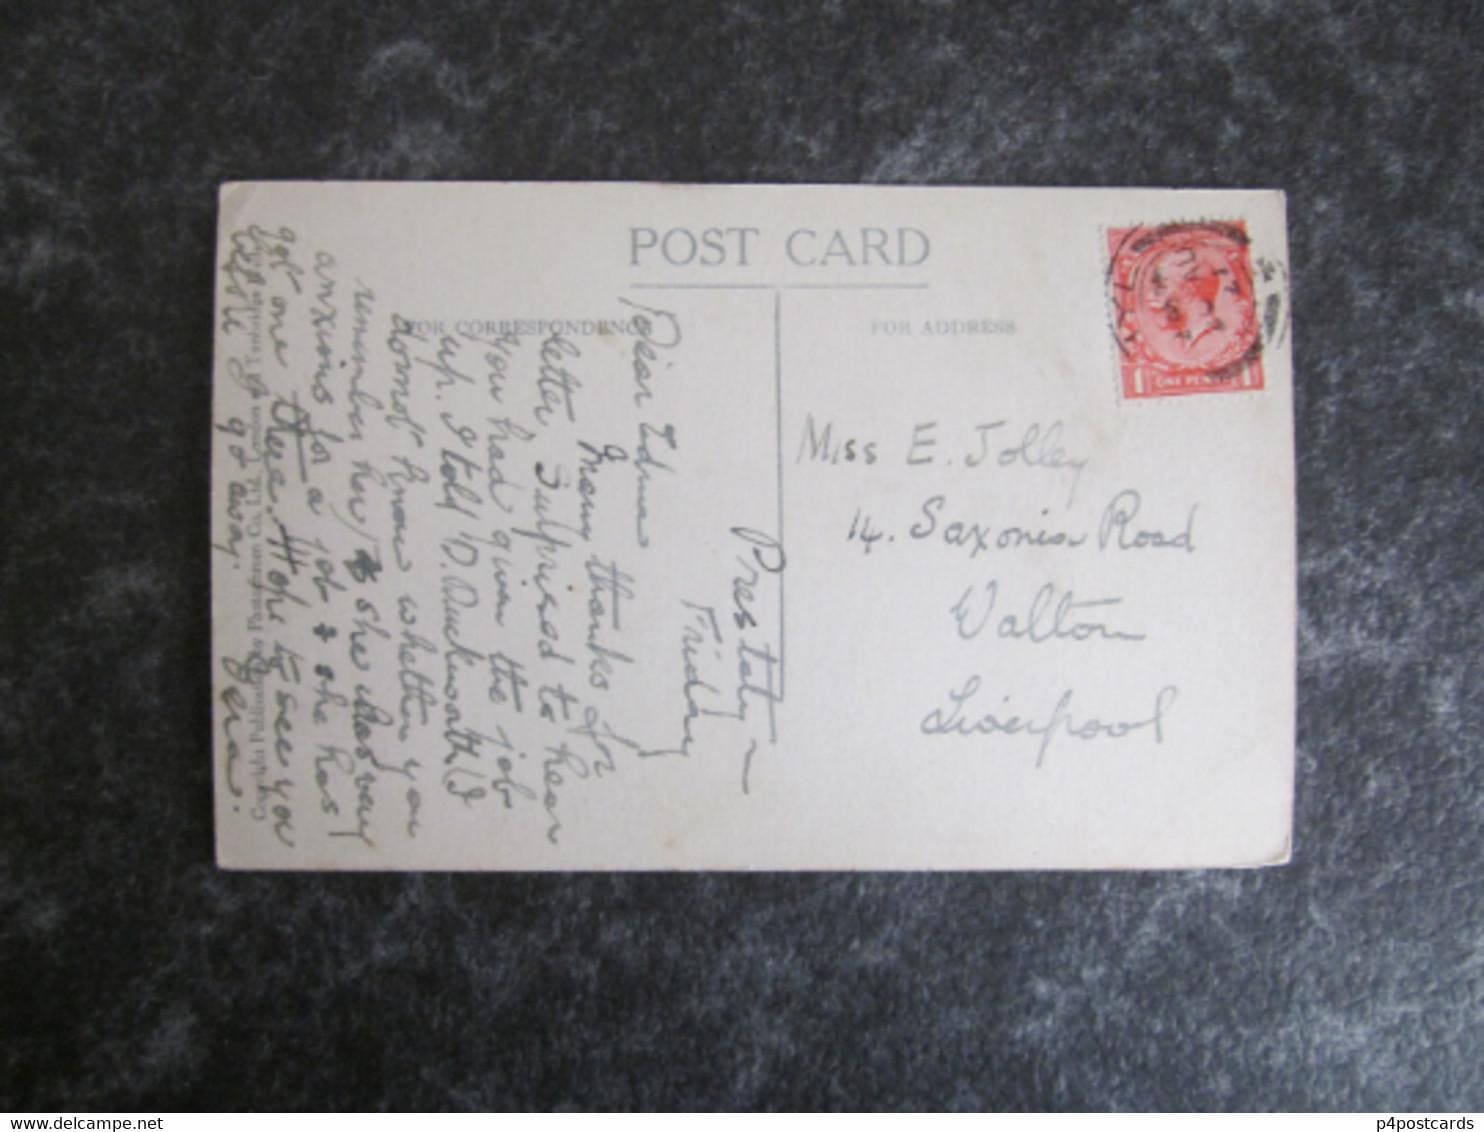 POST CARD
FOR CORRESPONDENCE
FOR ADDRESS
ONE PENNY
Miss E. Jolley
14. Saxonia Road
Walton
Liverpool
Prestatyn
Friday
Dear Edna
Many thanks for
letter. Surprised to hear
you had given the job
up. I told D. Duckworth (I
donnot know whether you
remember her) & she was very
anxious for a job & she has
got one there. Hope to see you
before I go away.
p4postcards